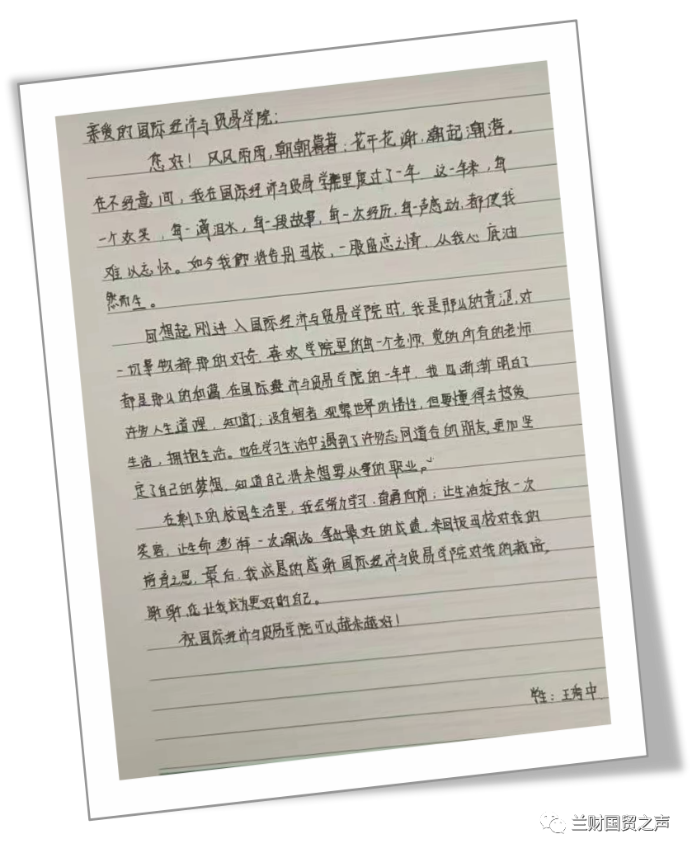 亲爱的国际经济与贸易学院：
您好！风风雨雨，朝朝暮暮；花开花谢，潮起潮落。
在不经意间，我在国际经济与贸易学院里度过了一年 这一年来，每
一个欢笑，每一滴泪水，每一段故事，每一次经历，每一声感动，都使我
难以忘怀。如今我即将告别母校，一股留恋之情，从我心底油
然而生。
回想起刚进入国际经济与贸易学院时，我是那么的青涩，对
一切事物都那的好奇，喜欢学院里的每一个老师，觉的所有的老师
都是那么的和蔼，在国际经济与贸易学院的一年中，我渐渐明白了
许多人生道理，知道了；没有智者观察世界的悟性，但要懂得去热爱
生活，拥抱生活。也在学习生活中遇到了许多志同道合的朋友，更加坚
定了自己的梦想，知道自己将来想要从事的职业。
在剩下的校园生活里，我会努力学习，奋勇向前；让生活绽放一次
笑容，让生命澎湃一次潮汐 拿出最好的成绩，来回报母校对我的
培育之恩，最后，我诚恳的感谢国际经济与贸易学院对我的栽培。
谢谢您让我成为更好的自己。
祝国际经济与贸易学院可以越来越好！
学生：王中
兰财国贸之声